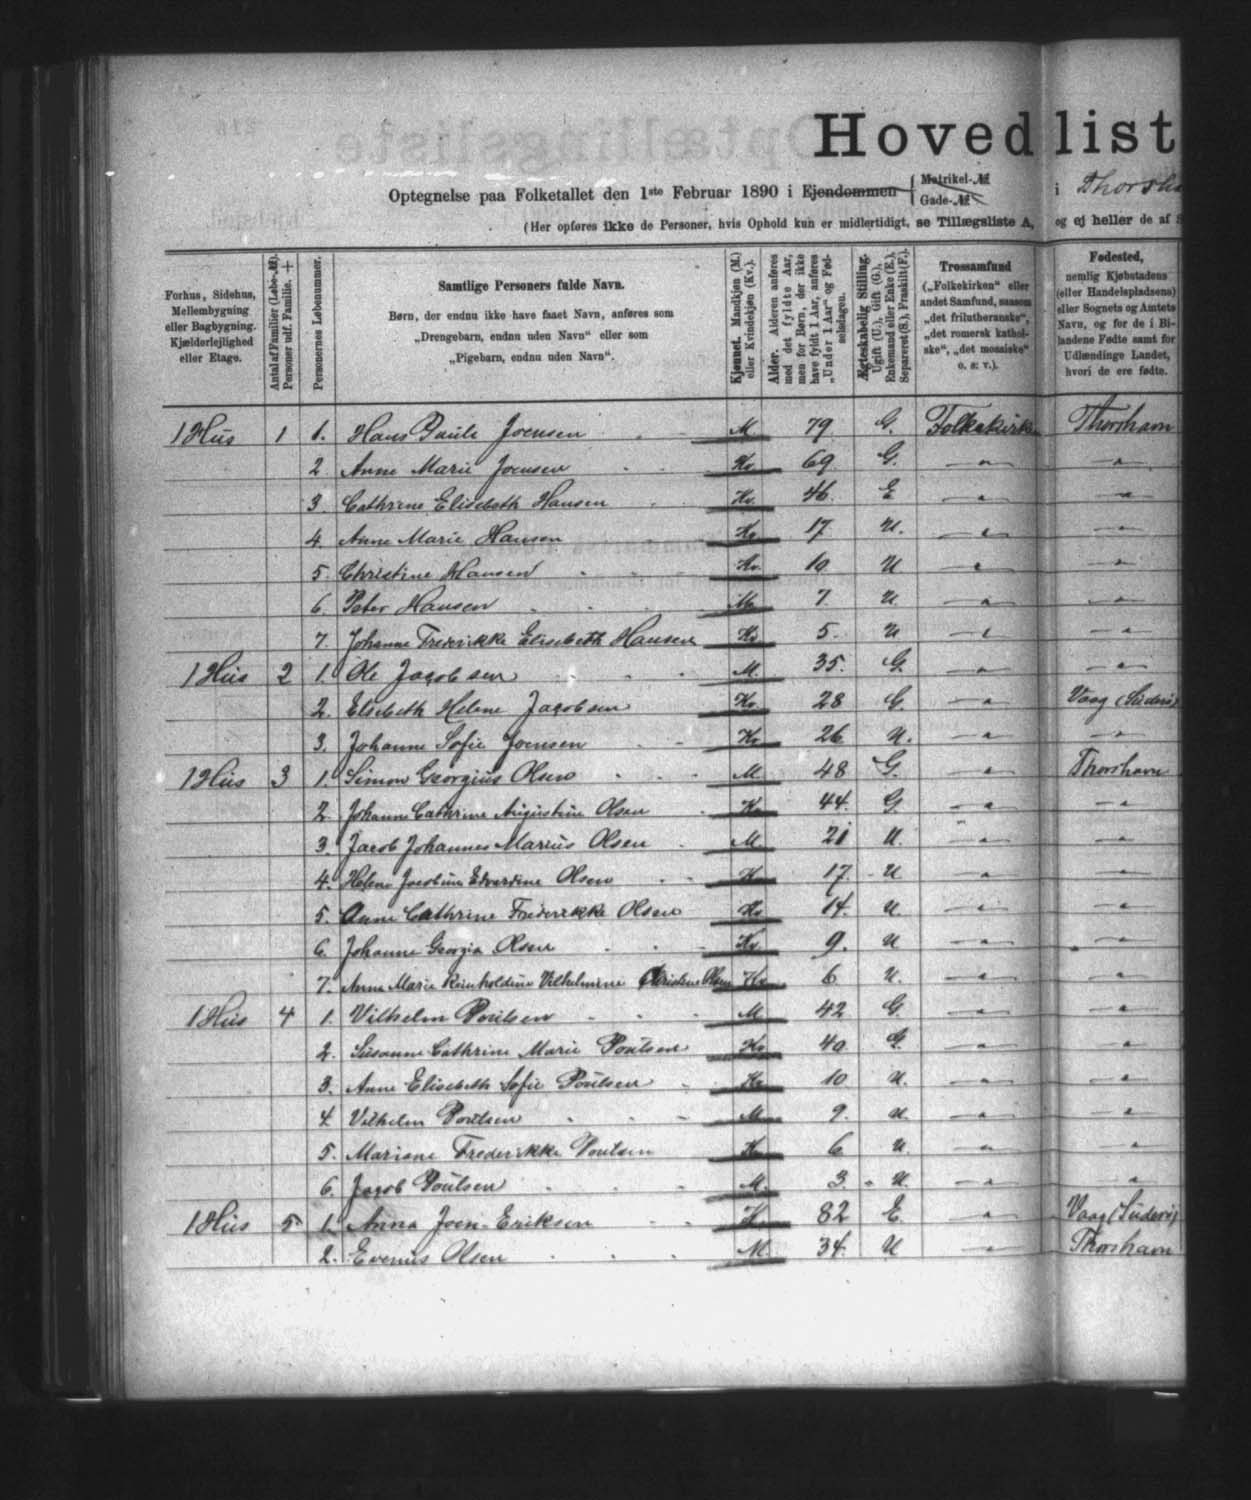 Hovedlist
Optegnelse paa Folketallet den 1ste Februar 1890 i Ejendommen { Matrikel-№ Gade-№ i Thorsha
(Her opføres ikke de Personer, hvis Ophold kun er midlertidigt, se Tillægsliste A, og ej heller de af
Forhus, Sidehus, Mellembygning eller Bagbygning. Kjælderlejlighed eller Etage.
Antal af Familier (Løbe-№). Personer udf. Familie. +
Personernes Løbenummer.
Samtlige Personers fulde Navn.
Børn, der endnu ikke have faaet Navn, anføres som „Drengebarn, endnu uden Navn“ eller som „Pigebarn, endnu uden Navn“.
Kjønnet. Mandkjøn (M.) eller Kvindekjøn (Kv.).
Alder. Alderen anføres med det fyldte Aar, men for Børn, der ikke have fyldt 1 Aar, anføres „Under 1 Aar“ og Fødselsdagen.
Ægteskabelig Stilling. Ugift (U.), Gift (G.), Enkemand eller Enke (E.), Separeret (S.), Fraskilt (F.).
Trossamfund („Folkekirken“ eller andet Samfund, saasom „det frilutheranske“, „det romersk katholske“, „det mosaiske“ o. s. v.).
Fødested, nemlig Kjøbstadens (eller Handelspladsens) eller Sognets og Amtets Navn, og for de i Bilandene Fødte samt for Udlændinge Landet, hvori de ere fødte.
1 Hus 1 1. Hans Paule Joensen M 79 G. Folkekirken Thorshavn
2 Anne Marie Joensen Kv 69 G. — " — — " —
3. Cathrine Elisebeth Hansen Kv. 46 E — " — — " —
4. Anne Marie Hansen Kv 17 U. — " — — " —
5. Christine Hansen Kv. 10 U — " — — " —
6. Peter Hansen M. 7. U. — " — — " —
7. Johanne Frederikke Elisebeth Hansen Kv 5. U — " — — " —
1 Hus 2 1. Ole Jacobsen M. 35. G. — " — — " —
2. Elsebeth Helene Jacobsen Kv. 28 G. — " — Vaag (Suderø)
3. Johanne Sofie Joensen Kv 26 U. — " — — " —
1 Hus 3 1. Simon Georgius Olsen M 48 G. — " — Thorshavn
2. Johanne Cathrine Augustine Olsen Kv 44. G. — " — — " —
3. Jacob Johannes Marius Olsen M. 21 U. — " — — " —
4. Helene Jacobine Edvardine Olsen K. 17 U — " — — " —
5. Anne Cathrine Frederikke Olsen Kv 14. U. — " — — " —
6. Johanne Georgia Olsen Kv 9. U — " — — " —
7. Anne Marie Reinholdine Vilhelmine Christine Olsen Kv 6 U. — " — — " —
1 Hus 4 1. Vilhelm Poulsen M 42 G. — " — — " —
2. Susanne Cathrine Marie Poulsen Kv 40. G. — " — — " —
3. Anne Elisebeth Sofie Poulsen Kv 10 U. — " — — " —
4. Vilhelm Poulsen M. 9. U. — " — — " —
5. Mariane Frederikke Poulsen Kv 6 U. — " — "
6. Jacob Poulsen M. 3. U. — " — "
1 Hus 5 1. Anna Joen-Eriksen K. 82 E. " Vaag (Suderø)
2. Evenus Olsen M. 34. U — " — Thorshavn